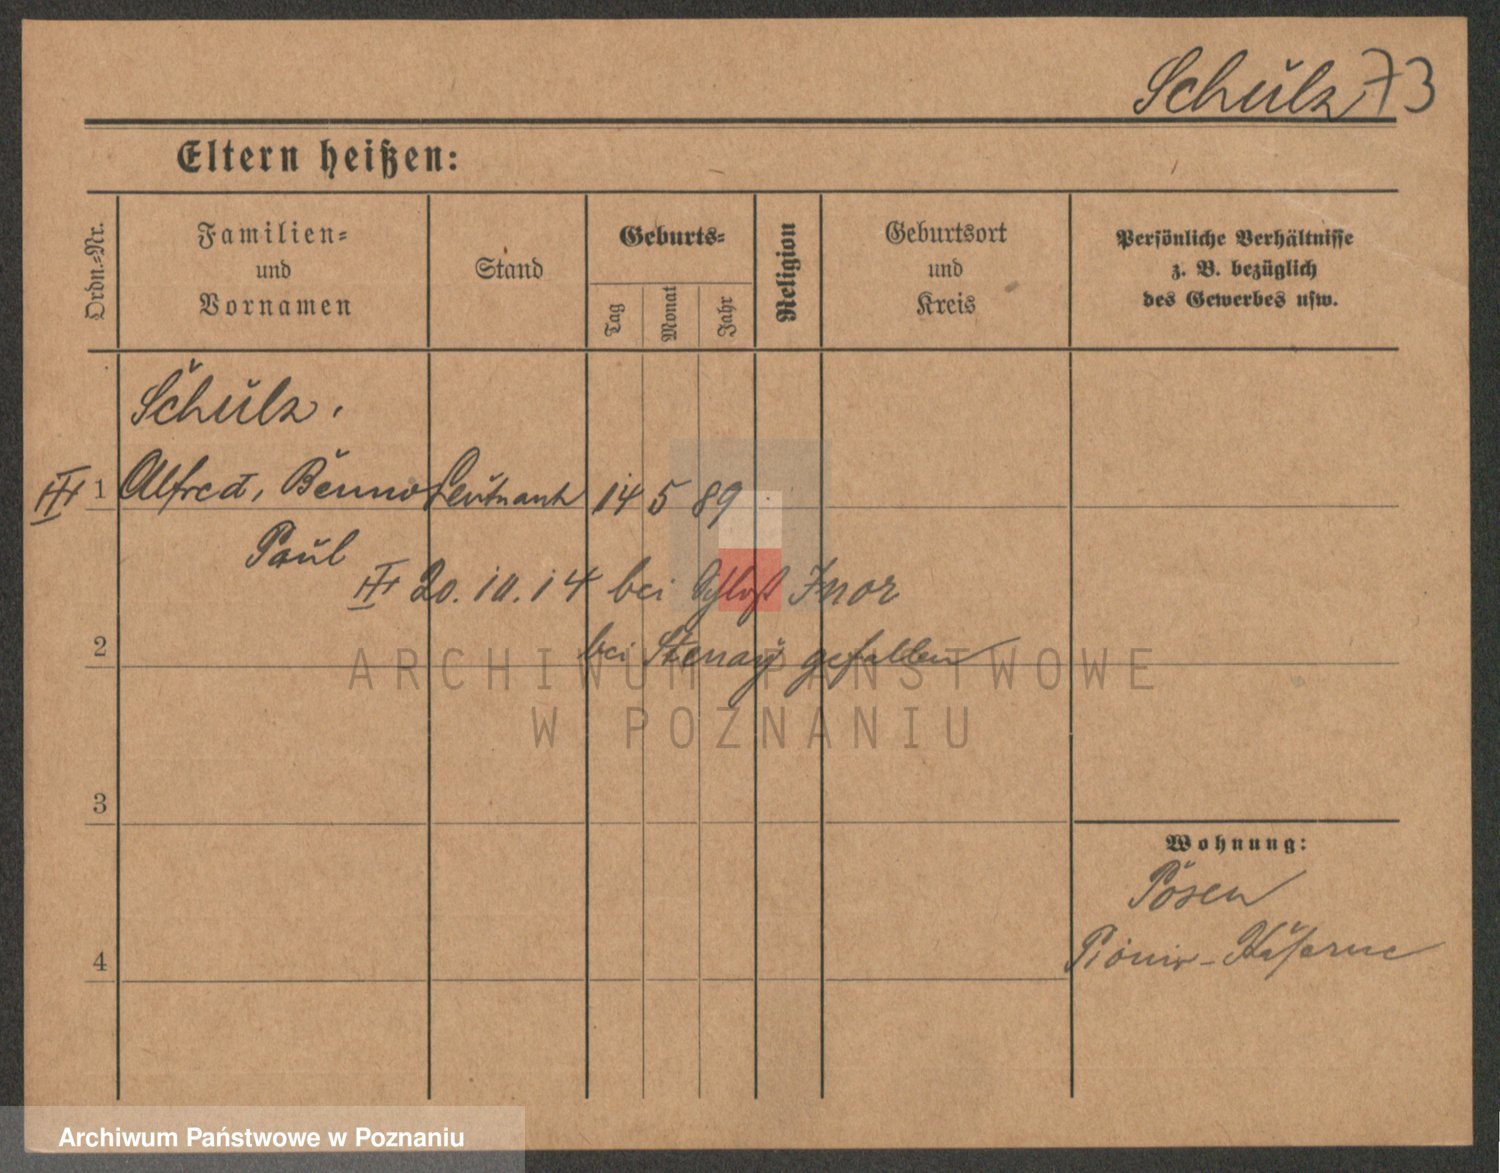 Schulz 73
Eltern heißen:
Ordn.-Nr.
Familien-
und
Vornamen
Stand
Geburts-
Tag
Monat
Jahr
Religion
Geburtsort
und
Kreis
Persönliche Verhältnisse
z. B. bezüglich
des Gewerbes usw.
Schulz.
1 Alfred, Benno Leutnant 14 5 89
Paul
20. 10. 14 bei Schloß Inor
2 bei Stenay gefallen
ARCHIWUM PAŃSTWOWE
W POZNANIU
3
Wohnung:
Posen
4 Pionir-Kaserne
Archiwum Państwowe w Poznaniu